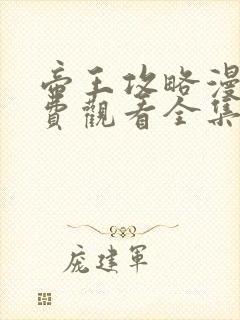 帝王攻略漫
費觀看全集
庞建軍